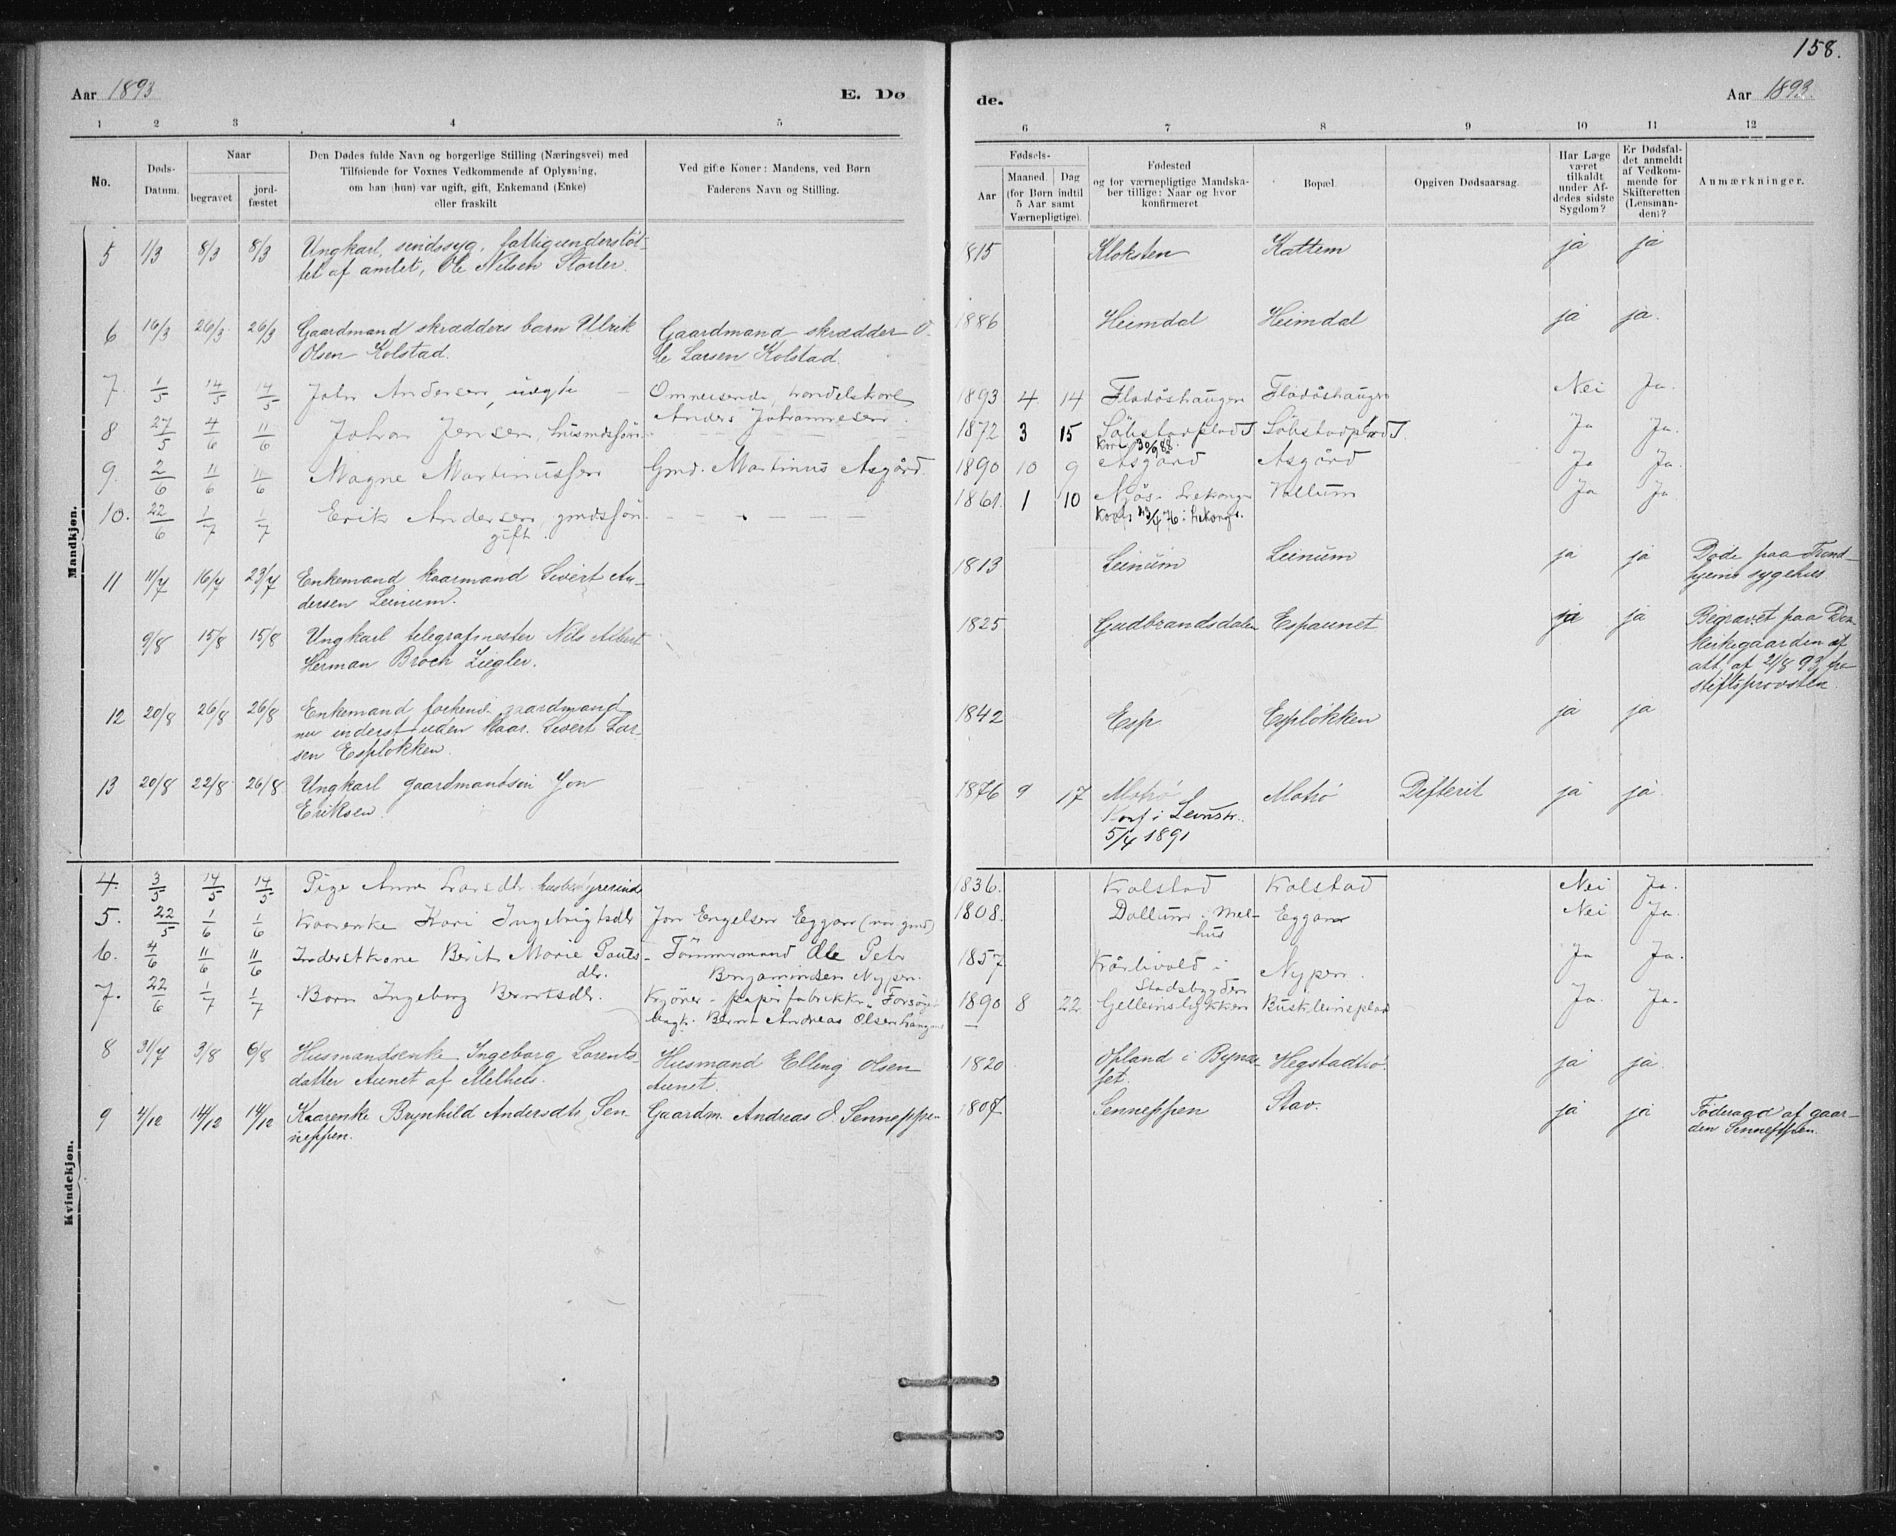 158.
Aar 1893 E. Dø de. Aar 1893.
1 2 3 4 5 6 7 8 9 10 11 12
No.
Døds-Datum.
Naar
begravet
jord-fæstet
Den Dødes fulde Navn og borgerlige Stilling (Næringsvei) med
Tilføiende for Voxnes Vedkommende af Oplysning,
om han (hun) var ugift, gift, Enkemand (Enke)
eller fraskilt
Ved gifte Koner: Mandens, ved Børn
Faderens Navn og Stilling.
Fødsels-
Aar
Maaned. Dag
(for Børn indtil
5 Aar samt
Værnepligtige).
Fødested
og for værnepligtige Mandska-
ber tillige: Naar og hvor
konfirmeret
Bopæl.
Opgiven Dødsaarsag.
Har Læge
været
tilkaldt
under Af-
dødes sidste
Sygdom?
Er Dødsfal-
det anmeldt
af Vedkom-
mende for
Skifteretten
(Lensman-
den)?
Anmærkninger.
Mandkjøn.
5 1/3 8/3 8/3 Ungkarl, sindssyg, fattigunderstøt- 1815 Kloksten Kattem ja ja
tet af amtet, Ole Nilsen Storler.
6 16/3 26/3 26/3 Gaardmand skrædders barn Ulrik Gaardmand skrædder O- 1886 Heimdal Heimdal ja ja.
Olsen Kolstad. le Larsen Kolstad.
7. 1/5 14/5 14/5 John Andersen, uægte Omreisende handelskarl 1893 4. 14 Fladåshaugen Fladåshaugen Nei Ja.
Anders Johannesen
8 27/5 4/6 11/6 Johan Jensen husmdssøn 1872 3 15 Søbstadplads Søbstadplads. Ja Ja.
Konf. 30/9 88.
9. 2/6 11/6 11/6 Magne Martinussen Gmd. Martinus Asgård. 1890 10 9 Asgård Asgård Ja Ja.
10. 22/6 1/7 1/7 Erik Andersen gmdssøn 1861. 1 10 Vallum Ja Ja.
gift.
11 11/7 16/7 23/7 Enkemand kaarmand Sivert An- 1813 Leinum Leinum ja ja Døde paa Trond-
dersen Leinum. hjems sygehus.
9/8 15/8 15/8 Ungkarl telegrafmester Nils Albert 1825 Gudbrandsdalen Espaunet ja ja Begravet paa Dom
Herman Broch Ziegler. kirkegaarden af
att. af 21/8 93 fra
stiftsprovsten.
12 20/8 26/8 26/8 Enkemand forhenv. gaardmand 1842 Esp Espløkken ja ja
nu inderst uden kaar. Sivert Lar-
sen Espløkken.
13 20/8 22/8 26/8 Ungkarl gaardmandsøn Jon 1876 9 17 Defterit ja ja.
Eriksen. Konf i Leinstr.
5/4 1891
Kvindekjøn.
4. 3/5 14/5 14/5 Pige Anne Larsdtr. husbestyrerinde 1836. Kralstad Kralstad Nei Ja.
5. 22/5 1/6 1/6 Kaarenke Kari Ingebrigtsdtr Jon Engelsen Eggan (var gmd) 1808. Dallum i Mel- Eggan Nei Ja.
hus
6. 4/6 11/6 11/6 Inderstkone Berit Marie Pauls- Tømmermand Ole Petr 1857 i Nypan. Ja Ja.
dtr. Benjaminsen Nypan. Stadsbygden
7. 22/6 1/7 1/7 Barn Ingeborg Berntsdtr. 1890 8 22 Gelleinsløkken Ja. Ja.
Bernt Andreas Olsen
8 31/7 3/8 6/8 Husmandsenke Ingeborg Lorents- Husmand Elling Olsen 1820 Opland i Bynæ- Hegstadtrø. ja ja.
datter Aunet af Melhus. Aunet. set.
9 4/12 14/12 14/12 Kaarenke Brynhild Andersdtr. Sen- Gaardm. Andreas O. Senneppen 1807 Senneppen Stav. ja ja Føderaad af gaar-
neppen. den Senneppen.